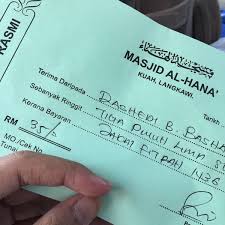 RASMI
MASJID AL-HANA'
KUAH, LANGKAWI.
Tarikh
Terima Daripada RASHEDI B. RASHA
Sebanyak Ringgit TIGA PULUH LIMA
Kerana Bayaran ZAKAT FITRAH 1436
RM 35/-
MO/Cek No
Tunai